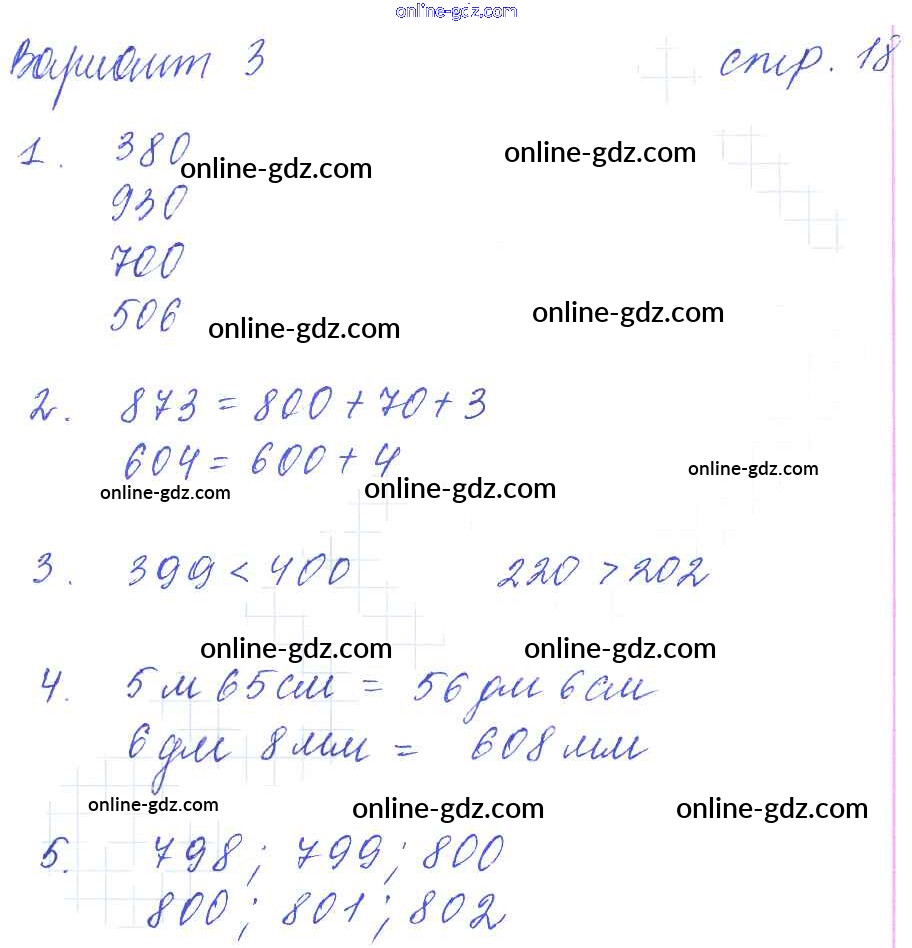 online-gdz.com
Вариант 3 стр. 18
1. 380
online-gdz.com online-gdz.com
930
700
506
online-gdz.com online-gdz.com
2. 873 = 800 + 70 + 3
604 = 600 + 4
online-gdz.com online-gdz.com online-gdz.com
3. 399 < 400 220 > 202
online-gdz.com online-gdz.com
4. 5 м 65 см = 56 дм 6 см
6 дм 8 мм = 608 мм
online-gdz.com online-gdz.com online-gdz.com
5. 798 ; 799 ; 800
800 ; 801 ; 802